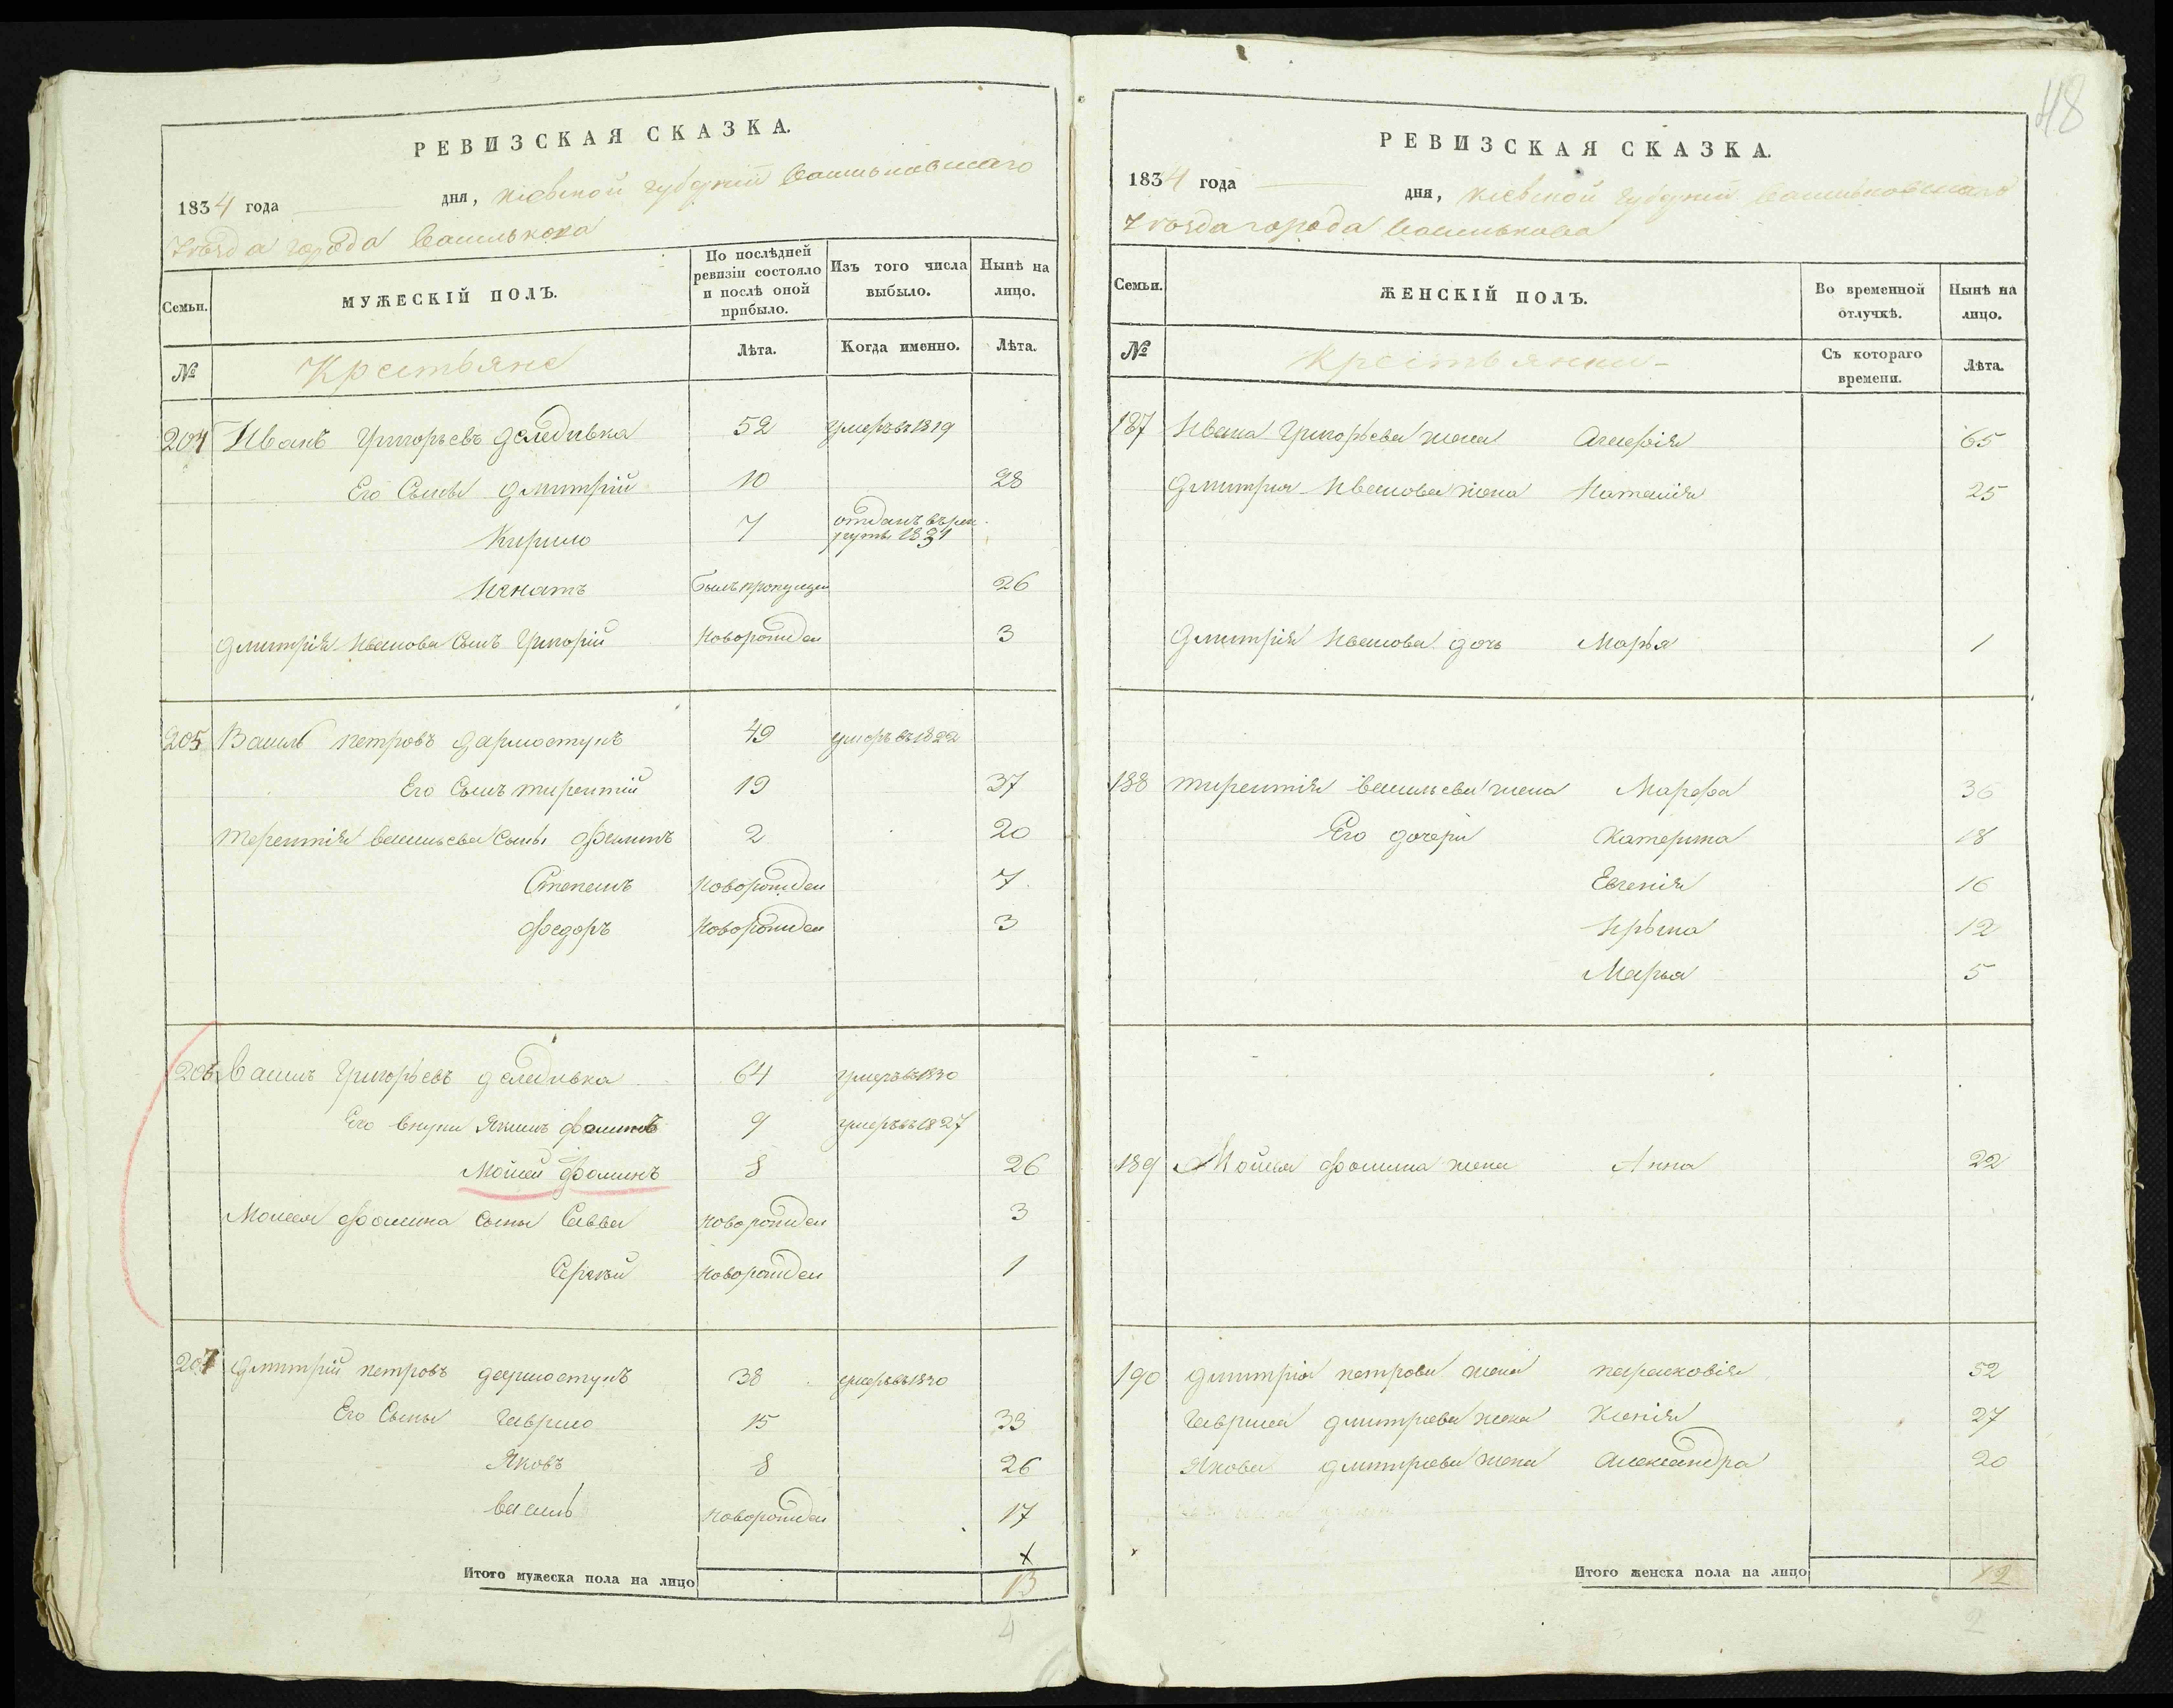 48
РЕВИЗСКАЯ СКАЗКА.
1834 года дня, Кіевской губерніи Васильковскаго
Уѣзда города Василькова
Семьи.
МУЖЕСКІЙ ПОЛЪ.
По послѣдней ревизіи состояло и послѣ оной прибыло.
Изъ того числа выбыло.
Нынѣ на лицо.
№
Крестьяне
Лѣта.
Когда именно.
Лѣта.
204 Иванъ Григорьевъ 52 умеръ въ 1819
Его Сыны Дмитрій 10 28
Кирило 7 отданъ въ рек
руты 1831
Игнатъ былъ пропущен 26
Дмитрія Иванова Сынъ Григорій Новорожден 3
205 Василь Петровъ 49 умеръ въ 1822
Его Сынъ Тирентій 19 37
Терентія Васильева Сыны Филипъ 2 20
Степанъ Новорожден 7
Федоръ Новорожден 3
206 Василь Григорьевъ 64 умеръ въ 1830
Его внуки Якимъ Фоминъ 9 умеръ въ 1827
Мойсей Фоминъ 8 26
Моисея Фомина Сыны Савва Новорожден 3
Сергѣй Новорожден 1
207 Дмитрій Петровъ 38 умеръ въ 1830
Его Сыны Гаврило 15 33
Яковъ 8 26
Василь Новорожден 17
Итого мужеска пола на лицо 13
4
РЕВИЗСКАЯ СКАЗКА.
1834 года дня, Кіевской губерніи Васильковскаго
Уѣзда города Василькова
Семьи.
ЖЕНСКІЙ ПОЛЪ.
Во временной отлучкѣ.
Нынѣ на лицо.
№
Крестьянки
Съ котораго времени.
Лѣта.
187 Ивана Григорьева жена 65
Дмитрия Иванова жена Наталія 25
Дмитрія Иванова дочь Марья 1
188 Тирентія Васильева жена Марфа 36
Его дочери Катерина 18
Евгенія 16
Ирына 12
Марья 5
189 Мойсея Фомина жена Анна 22
190 Дмитрія Петрова жена Парасковія 52
Гаврила Дмитріева жена Ксенія 27
Якова Дмитріева жена Александра 20
Итого женска пола на лицо 12
2